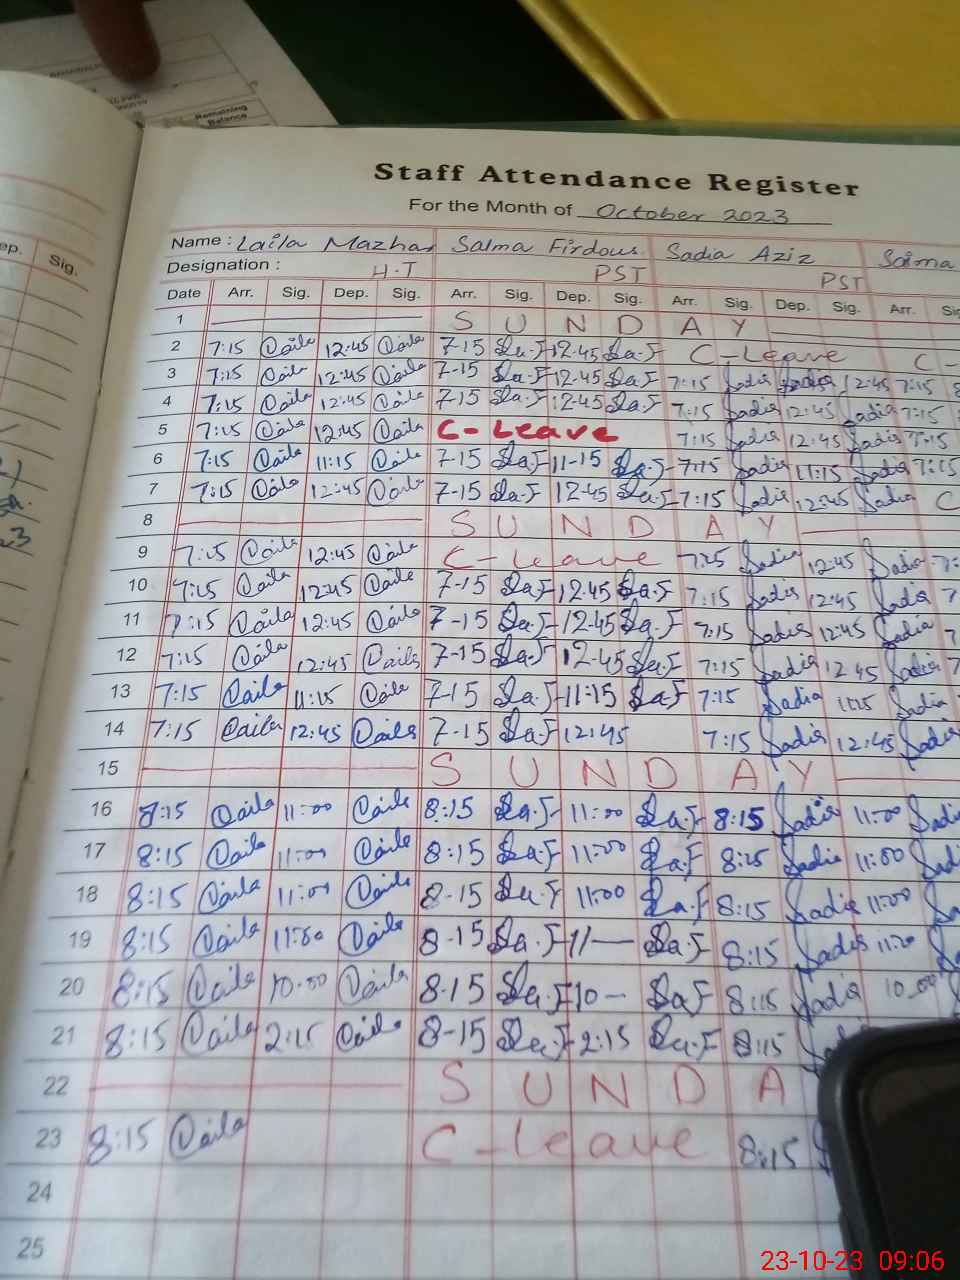 Remaining
Balance
ep. Sig.
Staff Attendance Register
For the Month of October 2023
Name : Laila Mazhar Salma Firdous. Sadia Aziz Saima
Designation : H.T PST PST
Date Arr. Sig. Dep. Sig. Arr. Sig. Dep. Sig. Arr. Sig. Dep. Sig. Arr. Sig
1 S U N D A Y
2 7:15 Laila 12:45 Laila 7-15 Sa.F 12-45 Sa.F C-Leave C-
3 7:15 Laila 12:45 Laila 7-15 Sa.F 12-45 Sa.F 7:15 Sadia Sadia 12:45 7:15
4 7:15 Laila 12:45 Laila 7-15 Sa.F 12-45 Sa.F 7:15 Sadia 12:45 Sadia 7:15
5 7:15 Laila 12:45 Laila C-Leave 7:15 Sadia 12:45 Sadia 7:15
6 7:15 Laila 11:15 Laila 7-15 Sa.F 11-15 Sa.F 7:15 Sadia 11:15 Sadia 7:15
7 7:15 Laila 12:45 Laila 7-15 Sa.F 12-45 Sa.F 7:15 Sadia 12:45 Sadia C
8 S U N D A Y
9 7:15 Laila 12:45 Laila C-Leave 7:15 Sadia 12:45 Sadia 7:
10 7:15 Laila 12:45 Laila 7-15 Sa.F 12.45 Sa.F 7:15 Sadia 12:45 Sadia 7
11 7:15 Laila 12:45 Laila 7-15 Sa.F 12-45 Sa.F 7:15 Sadia 12:45 Sadia 7
12 7:15 Laila 12:45 Laila 7-15 Sa.F 12-45 Sa.F 7:15 Sadia 12:45 Sadia 7
13 7:15 Laila 11:15 Laila 7-15 Sa.F 11:15 Sa.F 7:15 Sadia 11:15 Sadia 7
14 7:15 Laila 12:45 Laila 7-15 Sa.F 12:45 7:15 Sadia 12:45 Sadia
15 S U N D A Y
16 8:15 Laila 11:00 Laila 8:15 Sa.F 11:00 Sa.F 8:15 Sadia 11:00 Sadi
17 8:15 Laila 11:00 Laila 8:15 Sa.F 11:00 Sa.F 8:15 Sadia 11:00 Sad
18 8:15 Laila 11:00 Laila 8-15 Sa.F 11:00 Sa.F 8:15 Sadia 11:00 Sa
19 8:15 Laila 11:00 Laila 8-15 Sa.F 11— Sa.F 8:15 Sadia 11:00 S
20 8:15 Laila 10:00 Laila 8-15 Sa.F 10— Sa.F 8:15 Sadia 10_00
21 8:15 Laila 2:15 Laila 8-15 Sa.F 2:15 Sa.F 8:15
22 S U N D A
23 8:15 Laila C-Leave 8:15
24
25
23-10-23 09:06